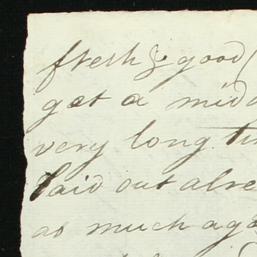 fresh & good (
get a mid
very long tim
laid out alre
as much aga